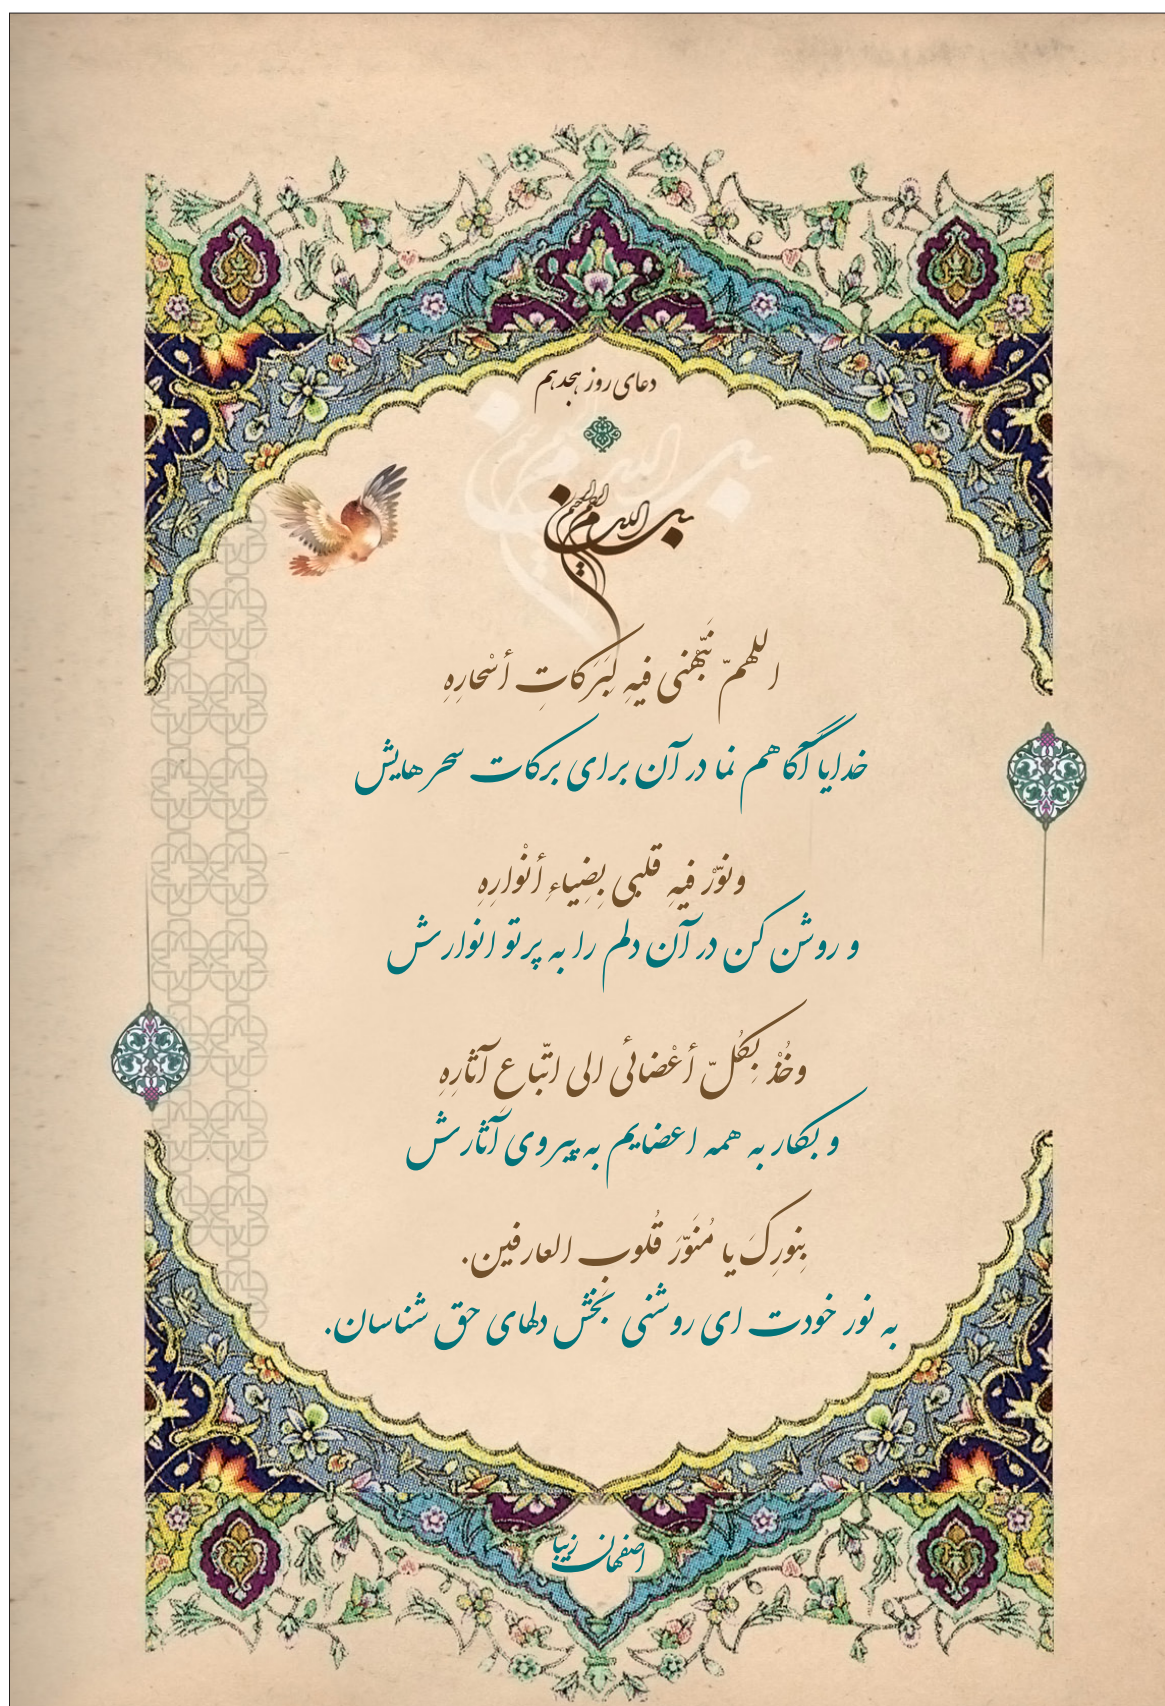 دعای روز هجدهم
بسم الله الرحمن الرحیم
اللهمّ نَبّهْنی فیهِ لِبَرَکاتِ أسْحارِهِ
خدایا آگاهم نما در آن برای برکات سحرهایش
ونوّرْ فیهِ قلبی بِضِیاءِ أنْوارِهِ
و روشن کن در آن دلم را به پرتو انوارش
وخُذْ بِکُلّ أعْضائی الی اتّباعِ آثارِهِ
و بکار به همه اعضایم به پیروی آثارش
بِنورِکَ یا مُنَوّرَ قُلوب العارفین.
به نور خودت ای روشنی بخش دلهای حق شناسان.
اصفهان زیبا